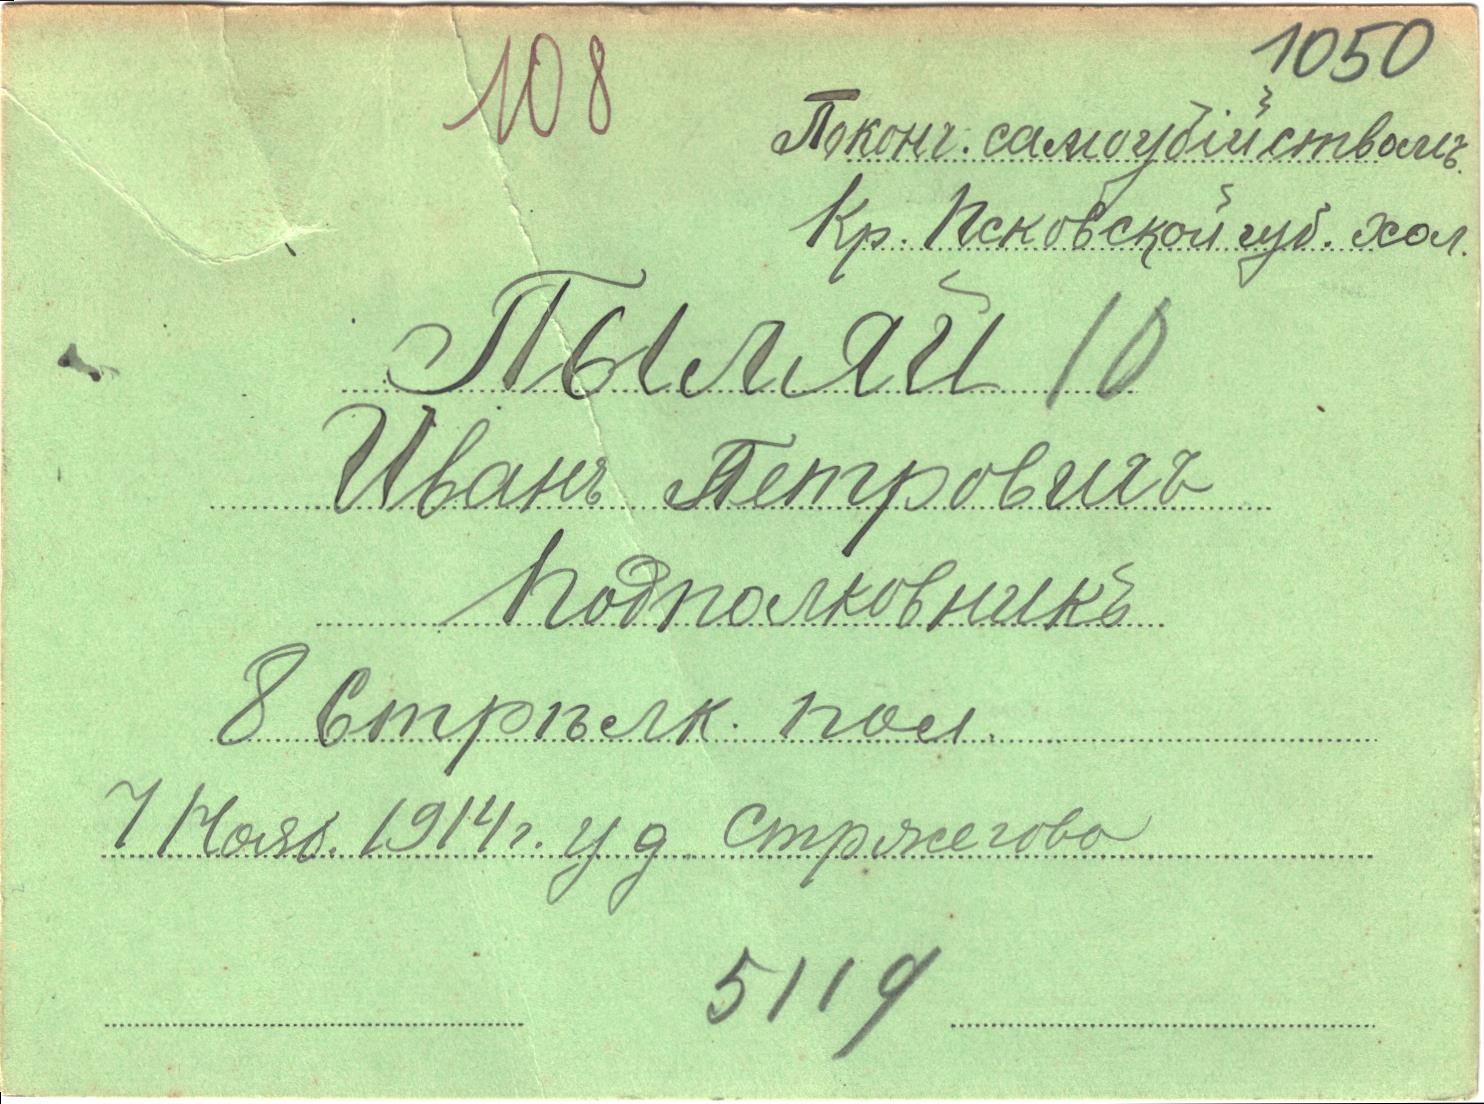 108 1050
Поконч. самоубійствомъ.
Кр. Псковской губ. хол.
Пыляй 10
Иванъ Петровичъ
Подполковникъ
8 Стрѣлк. пол.
7 Нояб. 1914 г. у д. Стржегово
5119